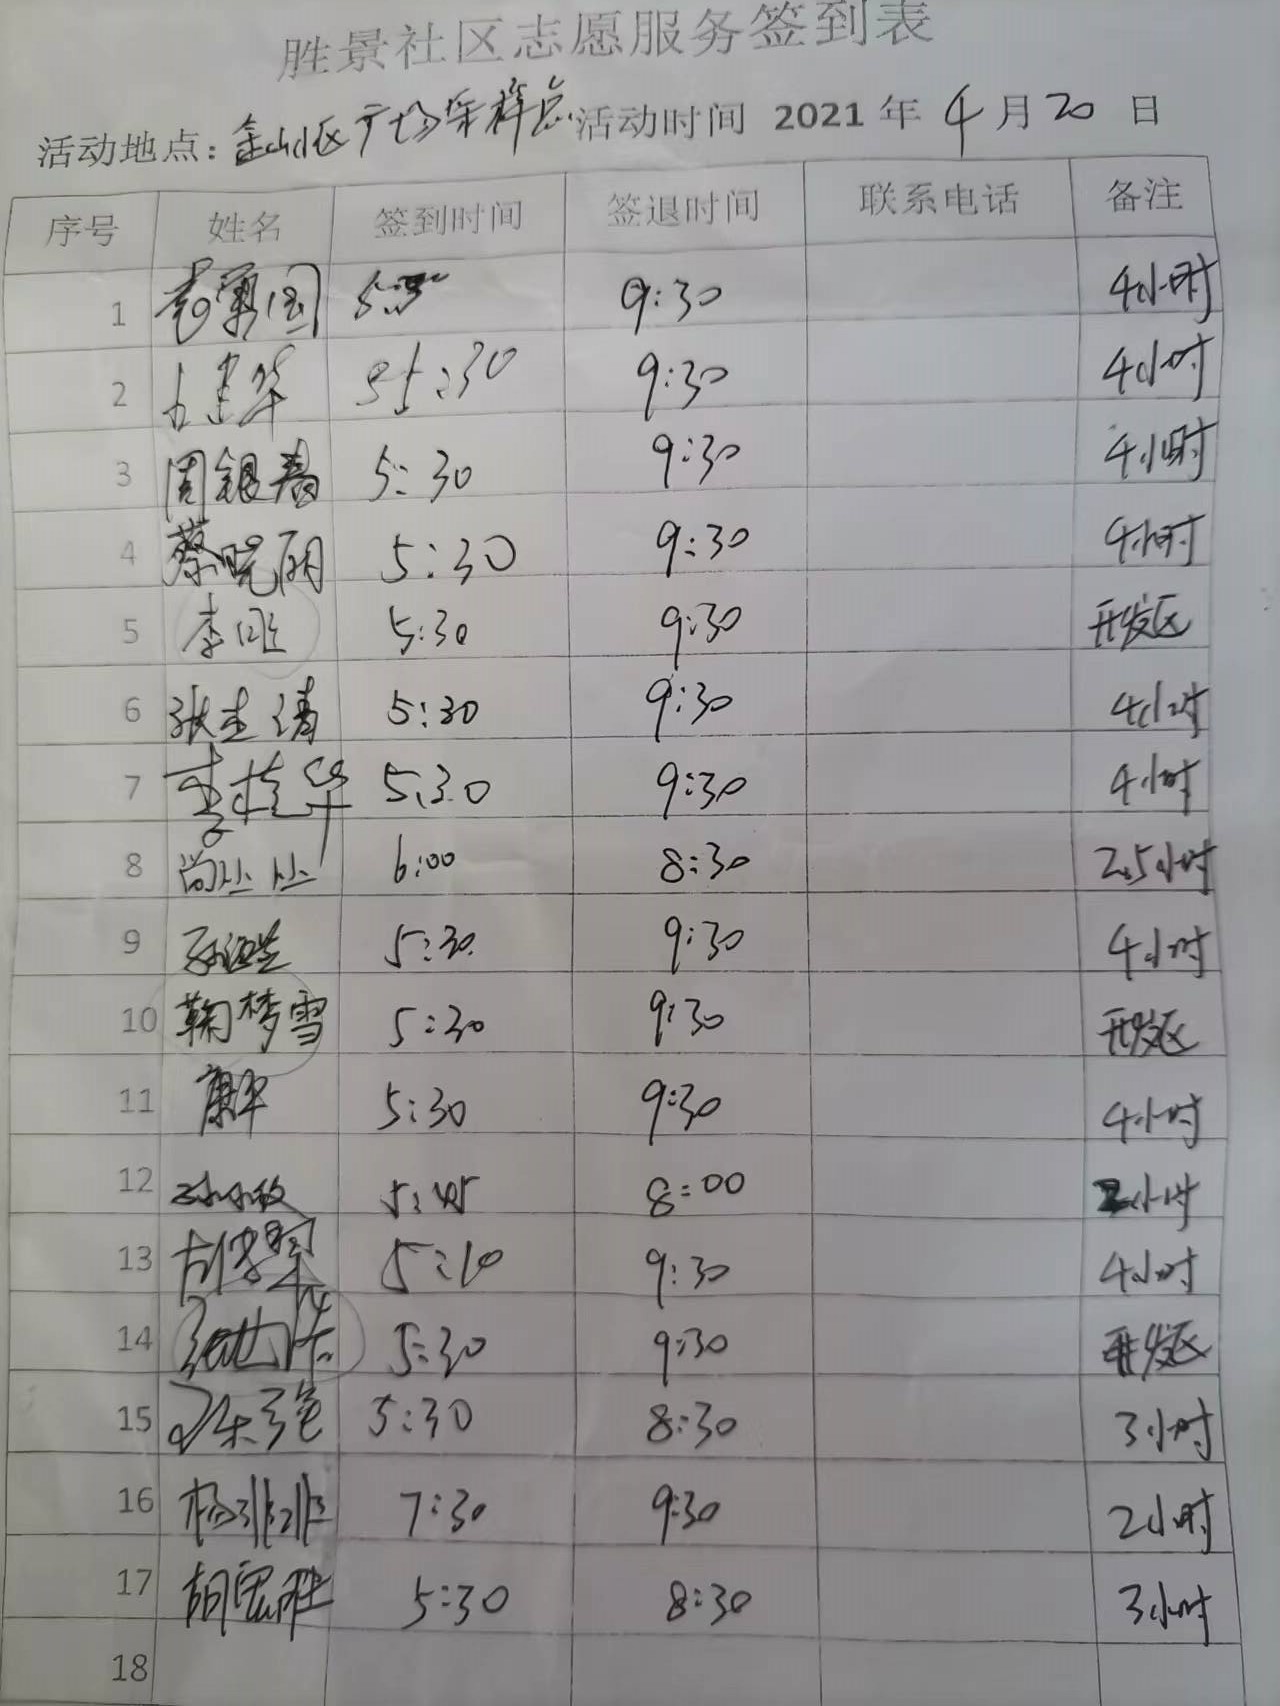 胜景社区志愿服务签到表
活动地点：金山小区广场采样点 活动时间 2021 年 4 月 20 日
序号 姓名 签到时间 签退时间 联系电话 备注
1 9:30 4小时
2 5:30 9:30 4小时
3 周银春 5:30 9:30 4小时
4 蔡晓丽 5:30 9:30 4小时
5 李 5:30 9:30 开发区
6 张 5:30 9:30 4小时
7 李桂华 5:30 9:30 4小时
8 尚丛丛 6:00 8:30 2.5小时
9 5:30 9:30 4小时
10 鞠梦雪 5:30 9:30 开发区
11 康平 5:30 9:30 4小时
12 5:45 8:00 2小时
13 5:10 9:30 4小时
14 5:30 9:30 开发区
15 5:30 8:30 3小时
16 杨非非 7:30 9:30 2小时
17 胡宏胜 5:30 8:30 3小时
18